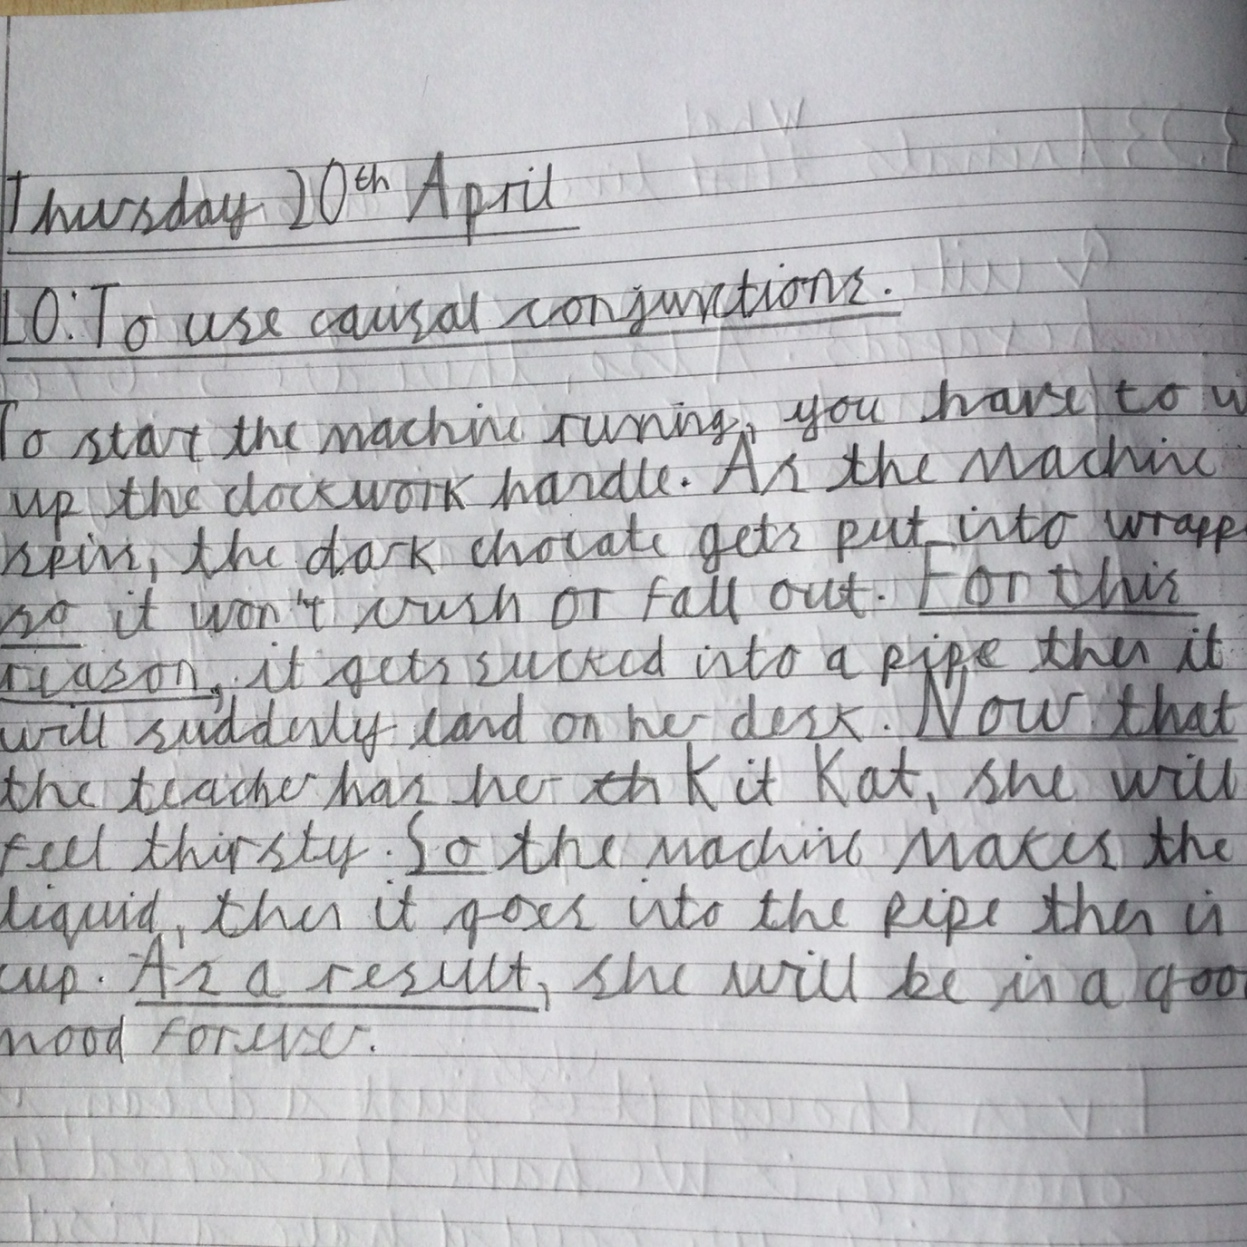 Thursday 20th April
LO: To use causal conjunctions.
To start the machine runing, you have to
up the clockwork handle. As the machine
spins, the dark chocate gets put into wrapp
so it won't crush or fall out. For this
reason, it gets sucked into a pipe then it
will suddenly land on her desk. Now that
the teacher has her th Kit Kat, she will
feel thirsty. So the machine makes the
liquid, then it goes into the pipe then in
cup. As a result, she will be in a goo
mood forever.